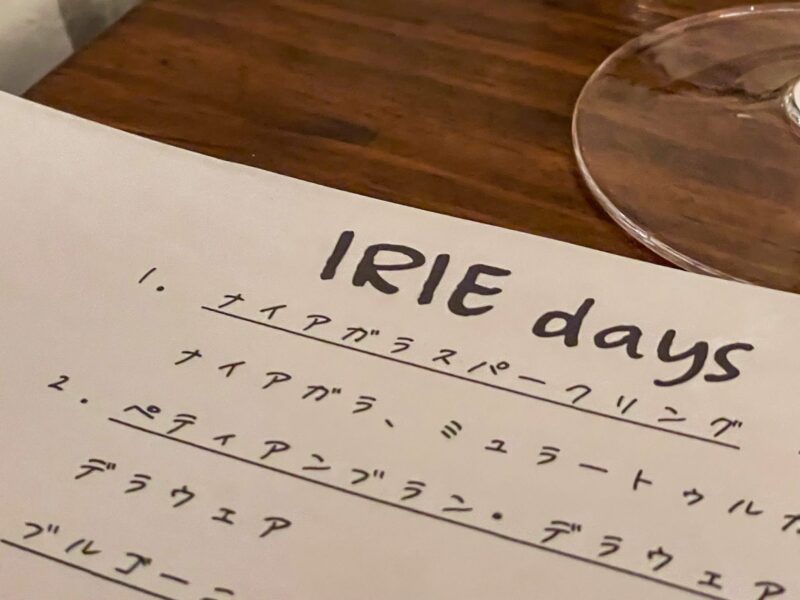 IRIE days
1. ナイアガラスパークリング
ナイアガラ、ミュラートゥルガ
2. ペティアンブラン・デラウェア
デラウェア
ブルゴーニ